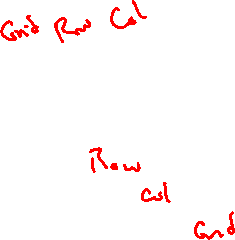 Grid Row Col
Row
Col
Grid